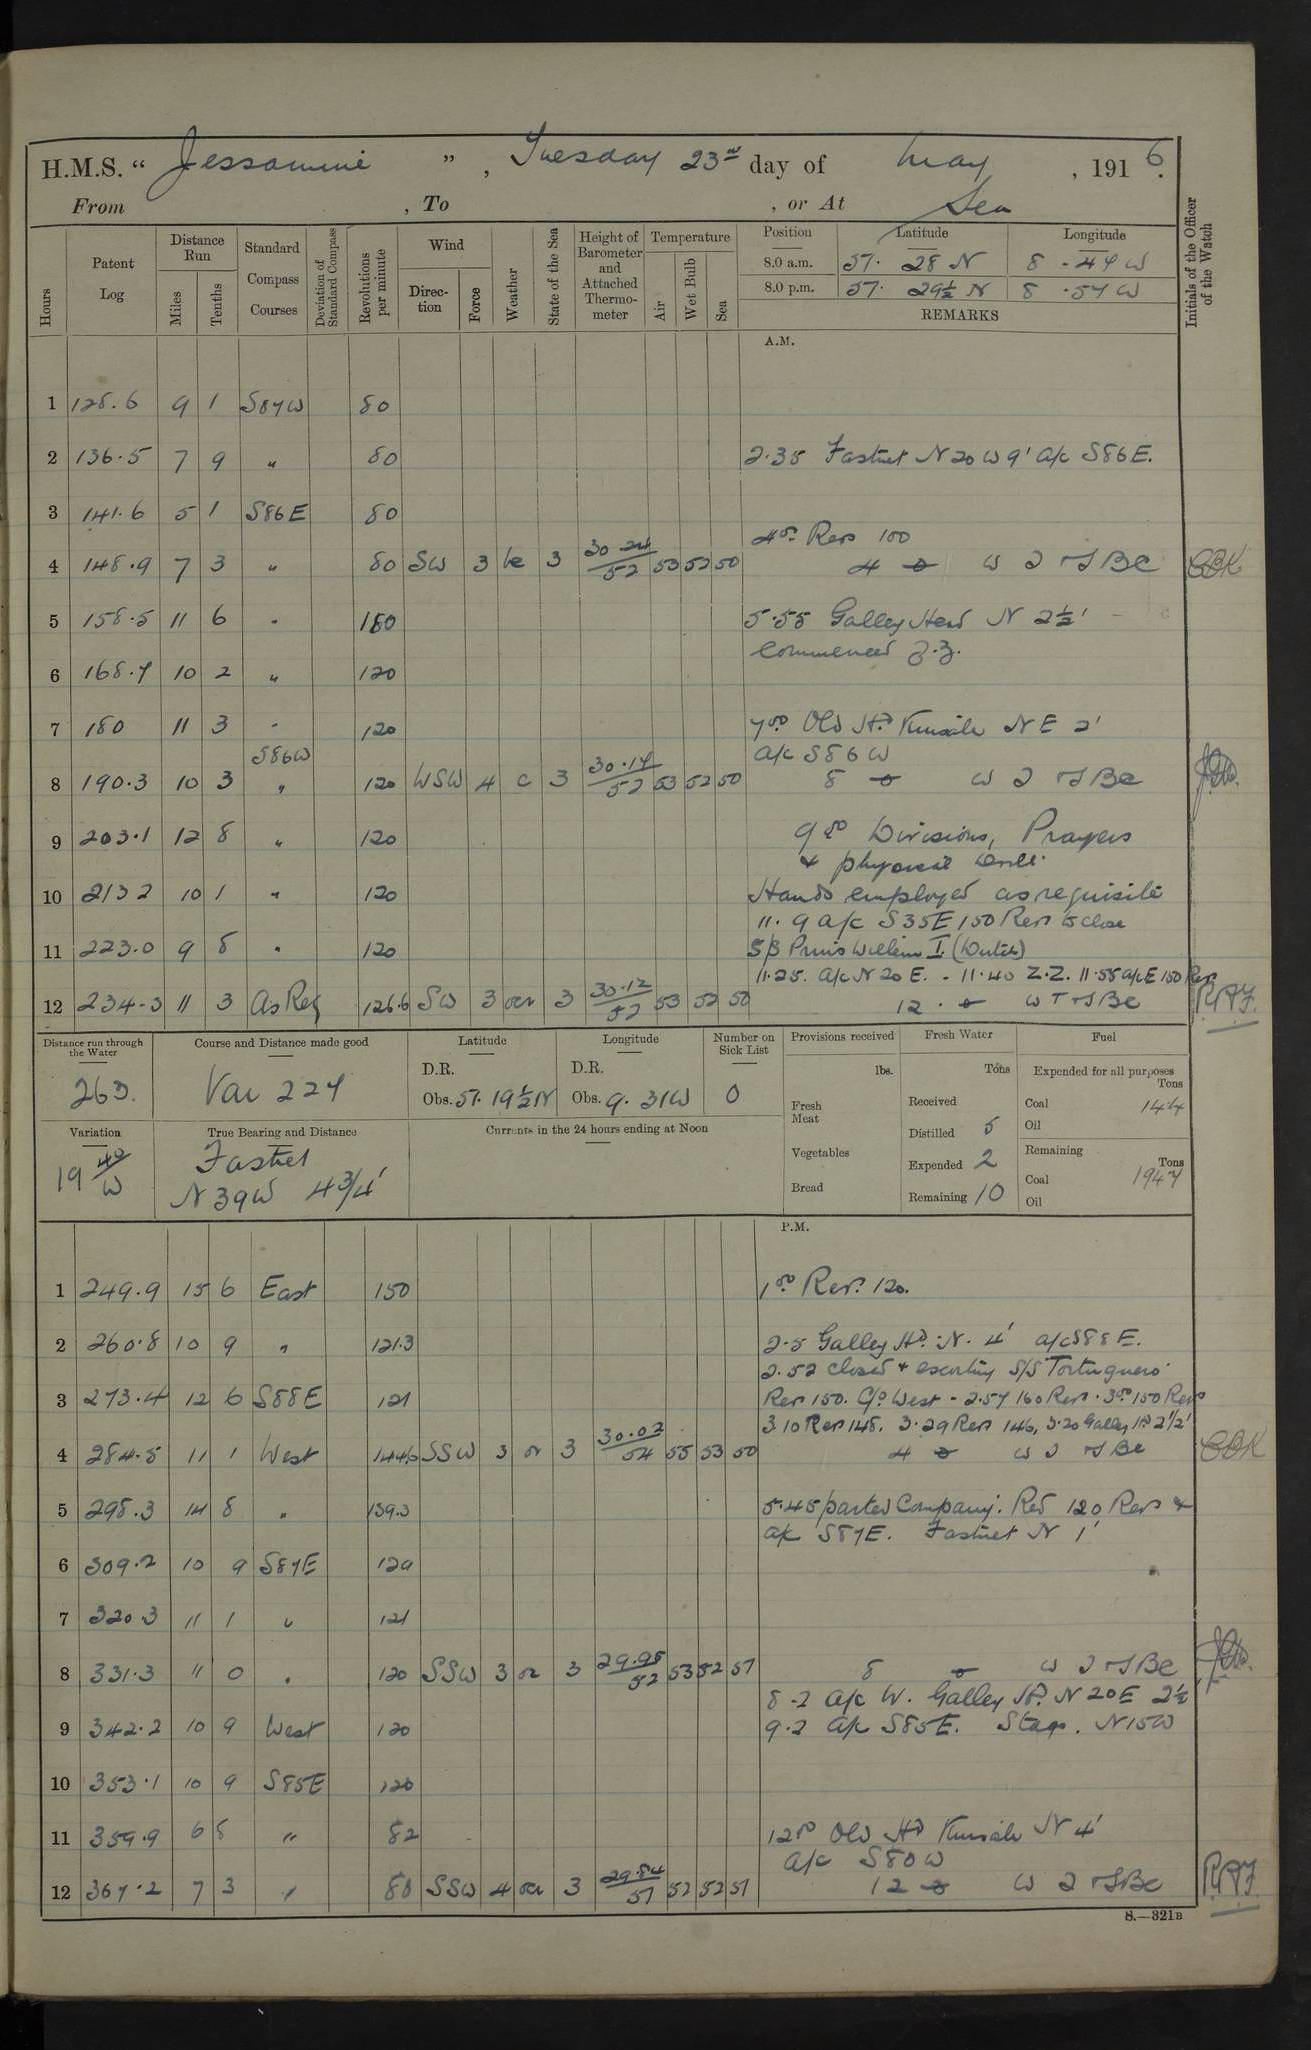 H.M.S. “ Jessamine ”, Tuesday 23rd day of May, 1916.
From , To , or At Sea
Hours
Patent Log
Distance Run
Miles
Tenths
Standard Compass Courses
Deviation of Standard Compass
Revolutions per minute
Wind
Direction
Force
Weather
State of the Sea
Height of Barometer and Attached Thermometer
Temperature
Air
Wet Bulb
Sea
Position Latitude Longitude
8.0 a.m. 51. 28 N 8 - 44 W
8.0 p.m. 51. 29½ N 8 . 54 W
REMARKS
Initials of the Officer of the Watch
A.M.
1 128.6 9 1 S87W 80
2 136.5 7 9 " 80 2.35 Fastnet N20W 9' a/c S86E.
3 141.6 5 1 S86E 80
4.0 Revs 100
4 148.9 7 3 " 80 SW 3 bc 3 30.24/52 53 52 50 4 W J T S B C
5 158.5 11 6 " 5.55 Galley Head N 2½'
Commenced Z.Z.
6 168.7 10 2 " 120
7 180 11 3 " 120 7.00 Old Hd Kinsale NE 2'
S86W a/c S86W
8 190.3 10 3 " 120 WSW 4 c 3 30.14/52 53 52 50 8
9 203.1 12 8 " 120 9.0 Divisions, Prayers
& physical drill.
10 213 2 10 1 " 120 Hands employed as requisite
11.9 a/c S35E 150 Revs to close
11 223.0 9 8 " 120 S/S Prins Willem I. (Dutch)
11.25. a/c N20E. - 11.40 Z.Z. 11.55 a/c E 150 Revs
12 234.3 11 3 As Req 126.6 SW 3 3 30.12/52 53 52 50 12 RAF.
Distance run through the Water
263.
Course and Distance made good
Var 224
Latitude
D.R.
Obs. 51. 19½ N
Longitude
D.R.
Obs. 9. 31 W
Number on Sick List
0
Provisions received
lbs.
Fresh Meat
Vegetables
Bread
Fresh Water
Tons
Received
Distilled 5
Expended 2
Remaining 10
Fuel
Expended for all purposes
Tons
Coal 14.4
Oil
Remaining
Tons
Coal 194.7
Oil
Variation
19 40/W
True Bearing and Distance
Fastnet
N39W 4¾'
Currents in the 24 hours ending at Noon
P.M.
1 249.9 15 6 East 150 1.00 Revs. 120.
2 260.8 10 9 " 121.3 2.5 Galley Hd. N. 4' a/c S88E.
2.52 closed & escorting S/S Tortuguero
3 273.4 12 6 S88E 121 Rev 150. C/o West - 2.57 160 Revs. 3.00 150 Revs
3.10 Rev 148. 3.29 Revs 146, 3.20 Galley Hd 2½'
4 284.5 11 1 West 144.6 SSW 3 3 30.02/54 55 53 50 4
5 298.3 14 8 " 139.3 5.45 parted Company. Red 120 Revs &
a/c S87E. Fastnet N 1'
6 309.2 10 9 S87E 120
7 320.3 11 1 " 121
8 331.3 11 0 " 120 SSW 3 3 29.98/52 53 52 51 8
8.2 a/c W. Galley Hd. N20E 2½
9 342.2 10 9 West 120 9.2 a/c S85E. Stags. N15W
10 353.1 10 9 S85E 120
11 359.9 6 8 " 82 12.00 Old Hd Kinsale N 4'
a/c S80W
12 367.2 7 3 " 80 SSW 4 3 29.84/51 52 52 51 12 RAF
S.—321B